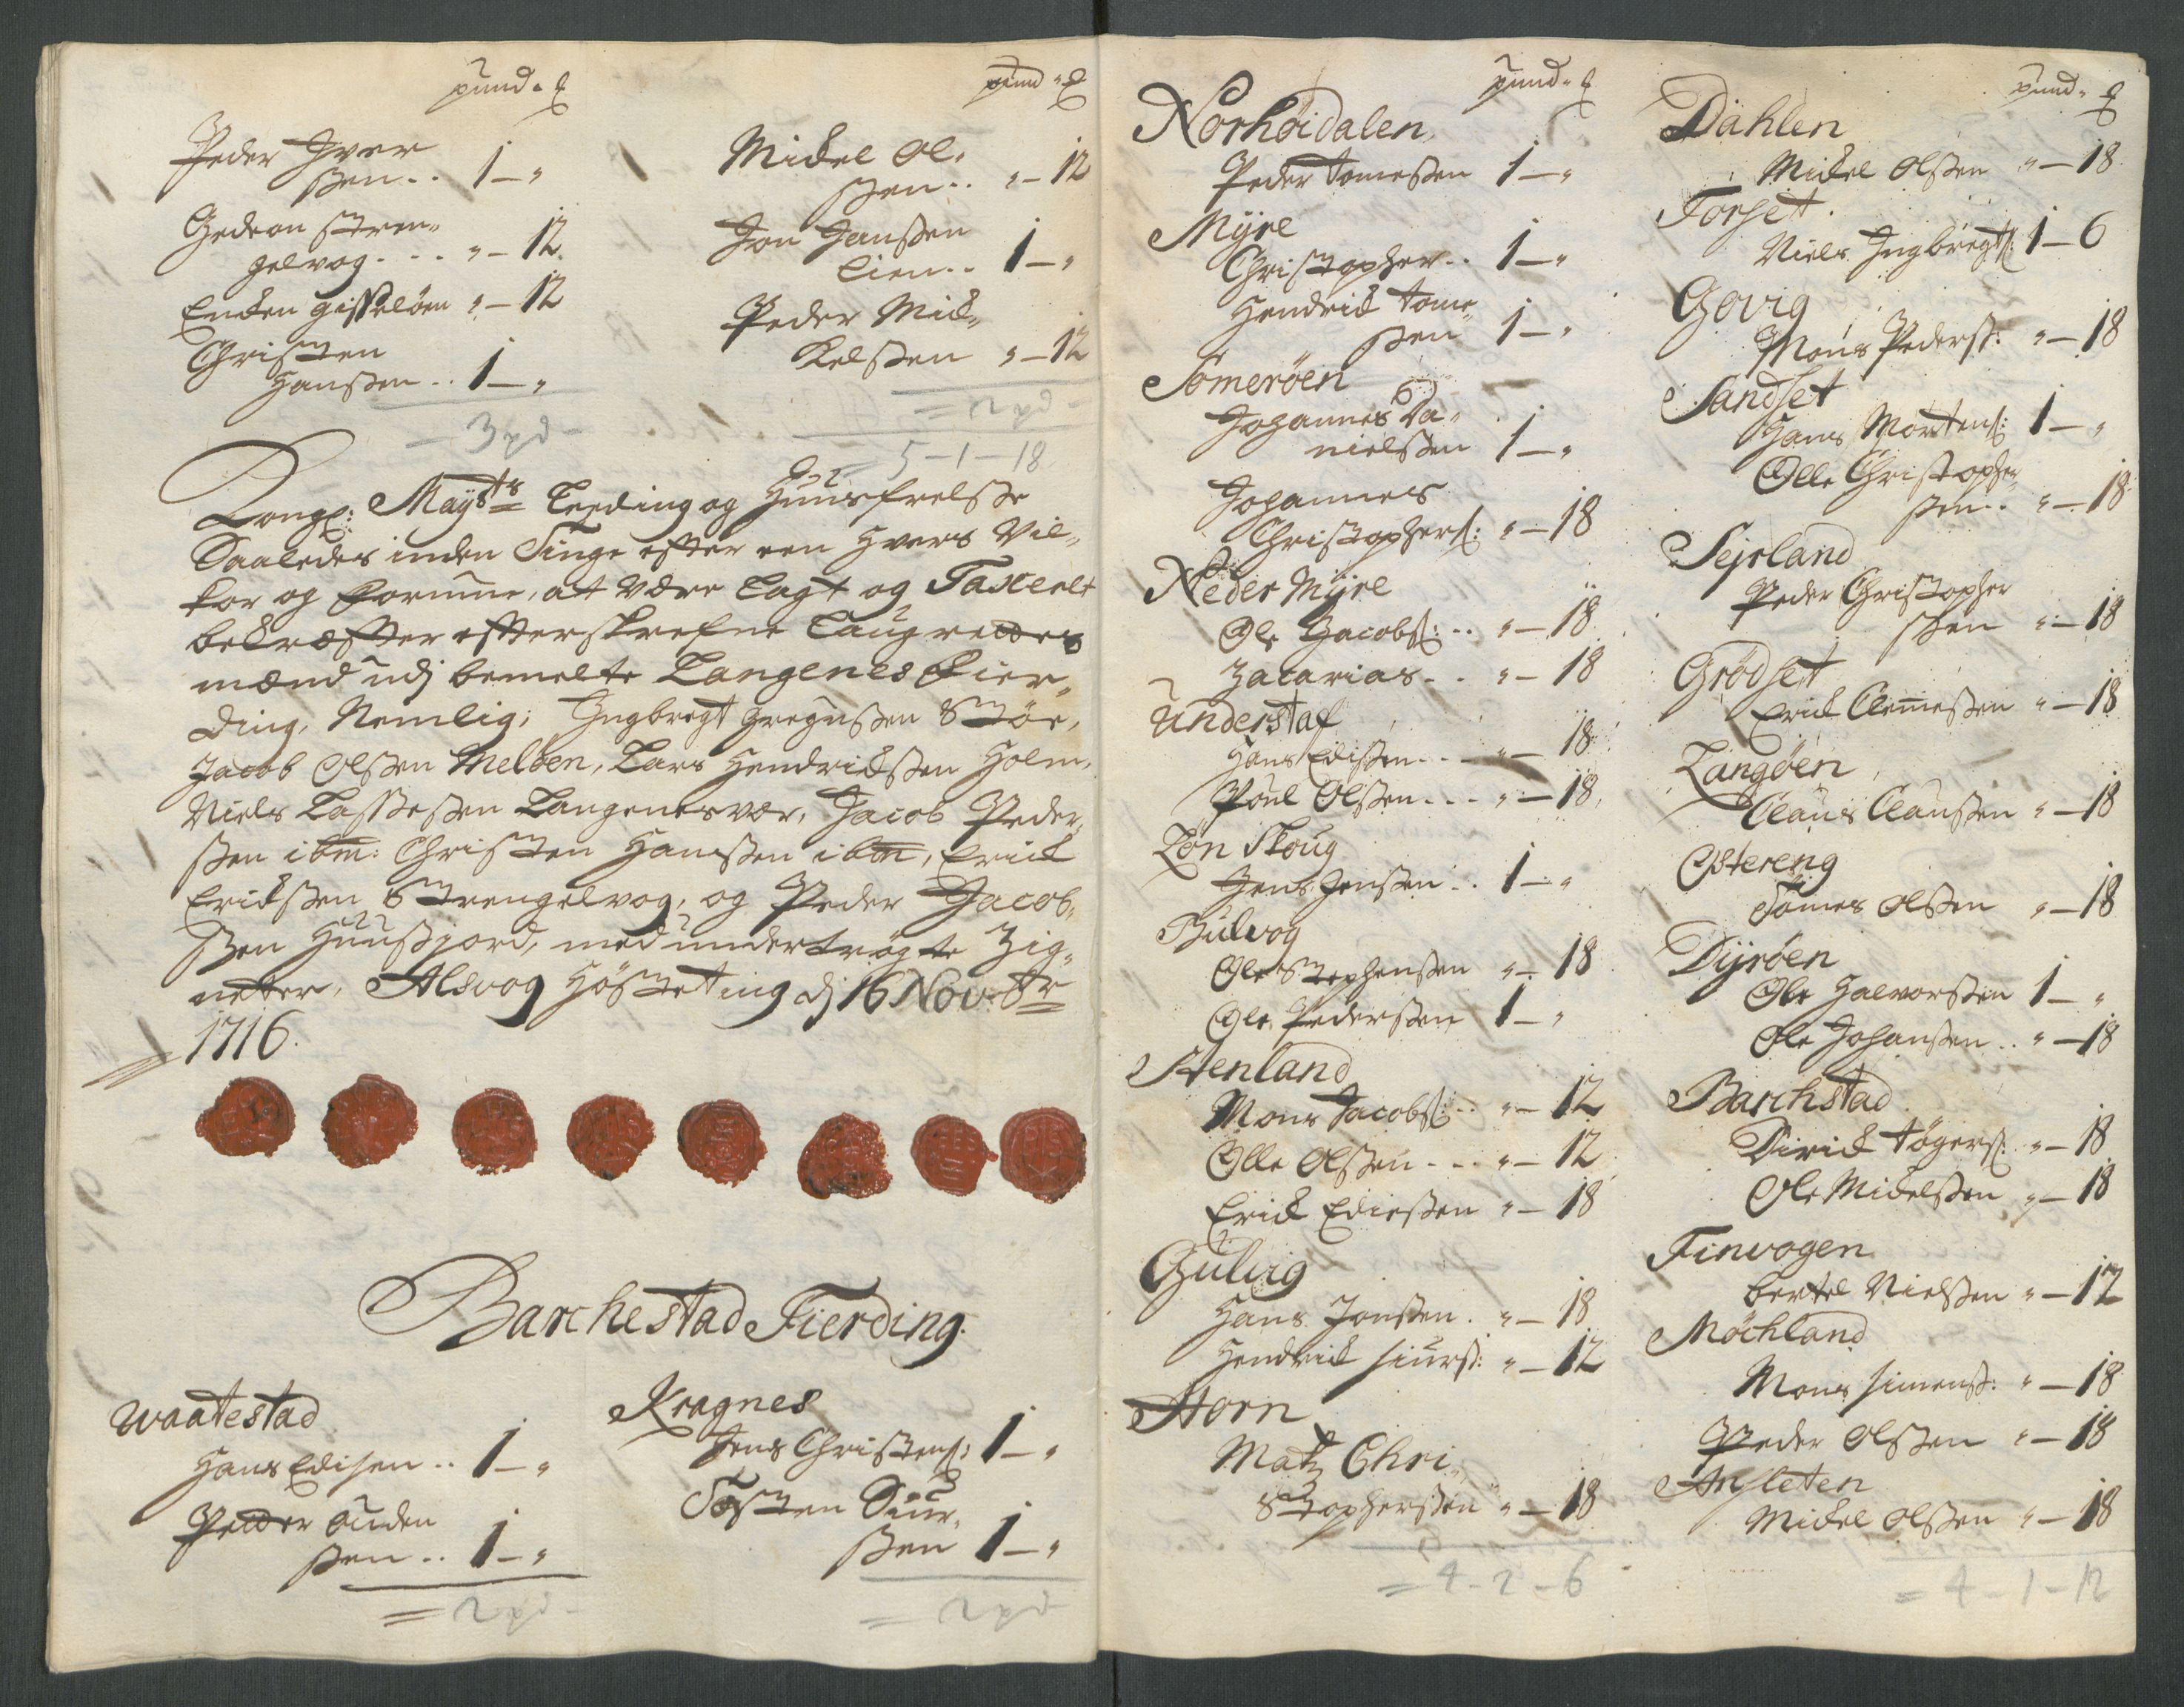 pund - ℔
Peder Iver
ßen .. 1 — "
Gedeon Stren„
gelvog . . . " — 12
Enken Gisseløen " — 12
Christen
Hanßen .. 1 — "
— 3 pd —
pund - ℔
Mickel Ol„
ßen .. " — 12
Jon Hanßen
Lien .. 1 — "
Peder Mic„
kelßen " — 12
= 2 pd —
= 5 - 1 - 18
Kongl: Mayts Leeding og Huusfrelsse
Saaledes inden Tinge efter een Hvers Vil„
kor og Formue, at være Lagt og Taxeret
bekræffter effterskrefne Laugrettes
mænd udj bemelte Langenes Fier„
ding, Nemlig; Ingbregt Gregußen Støe,
Jacob Olßen Melben, Lars Hendricksen Holm,
Niels Laßeßen Langenesvær, Jacob Peder„
ßen ibm: Christen Hansßen ibm, Erick
Erickßen Strengelvog, og Peder Jacob„
ßen Huusfjord, med undertrøgte Zig„
neter, Alsvog Høsteting dj 16 Novbr
1716.
Barchestad Fierding.
Waatestad
Hans Edisen .. 1 — "
Peder Auden
ßen .. 1 — "
= 2 pd —
Kragnes
Jens Christens: 1 — "
Tosten Siur„
ßen 1 — "
= 2 pd
pund - ℔
Norhøidalen
Peder Tomeßen 1 — "
Myre
Christopher .. 1 — "
Hendrick Tome„
ßen 1 — "
Somerøen
Johannes Da„
nielßen 1 — "
Johannes
Christophers: " — 18
Neder Myre
Ole Jacobs: .. " — 18
Zacarias . . " — 18
Understaf
Hans Edißen . . . " — 18
Poul Olßen . . . " — 18
Løn Skoug
Jens Jenßen .. 1 — "
Tulvog
Ole Stephenßen " — 18
Ole Pederßen 1 — "
Stenland
Mons Jacobs: .. " — 12
Olle Olßen . . . " — 12
Erick Edießen " — 18
Gulvig
Hans Jonßen . " — 18
Hendrick Siurs: " — 12
Horn
Matz Chri„
stopherßen " — 18
= 4 - 2 - 6
pund - ℔
Dahlen
Mickel Olßen " — 18
Forset
Niels Ingbregts: 1 — 6
Govig
Mons Peders: " — 18
Sandset
Hans Mortens: 1 — "
Olle Christopher„
ßen .. " — 18
Sejrland
Peder Christopher
ßen " — 18
Grødset
Erick Clemeßen " — 18
Langøen
Claus Claußen " — 18
Østereng
Tomes Olßen " — 18
Dyrøen
Ole Halvorßen 1 — "
Ole Johanßen .. " — 18
Barchstad
Dirick Tøgers: " — 18
Ole Mickelßen " — 18
Finvogen
Bertel Nielßen " — 12
Möchland
Mons Simens: " — 18
Peder Olßen " — 18
Ansleten
Mickel Olßen " — 18
= 4 - 1 - 12